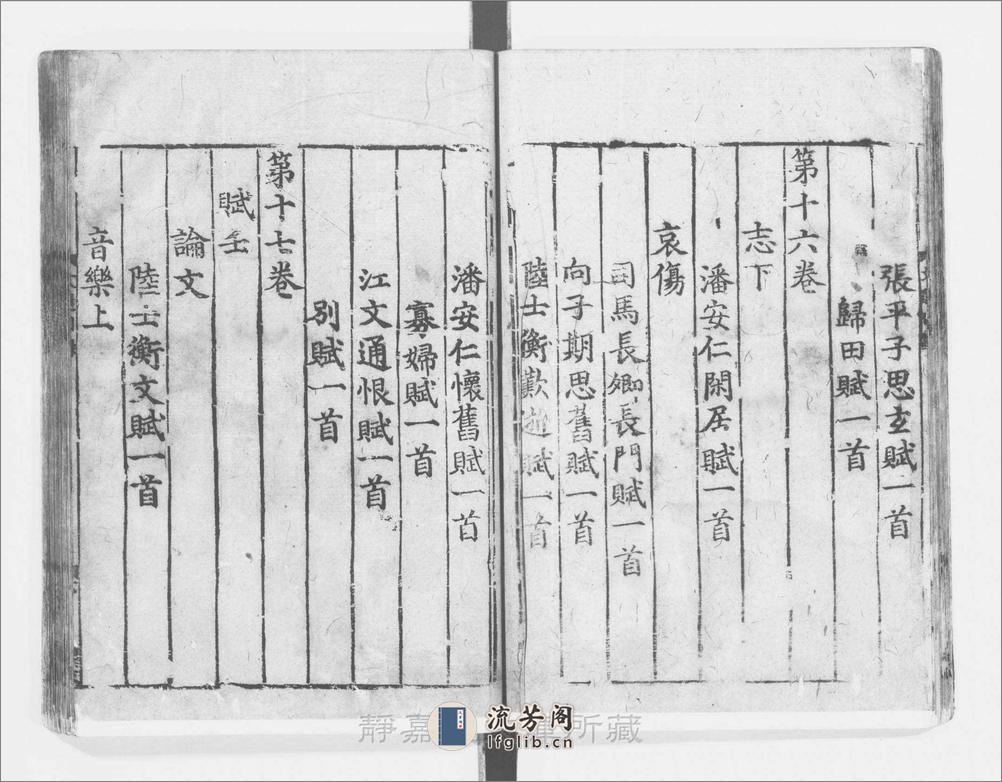 張平子思玄賦一首
歸田賦一首
第十六卷
志下
潘安仁閑居賦一首
哀傷
司馬長卿長門賦一首
向子期思舊賦一首
陸士衡歎逝賦一首
潘安仁懷舊賦一首
寡婦賦一首
江文通恨賦一首
別賦一首
第十七卷
賦壬
論文
陸士衡文賦一首
音樂上
靜嘉
所藏
流芳阁
lfglib.cn